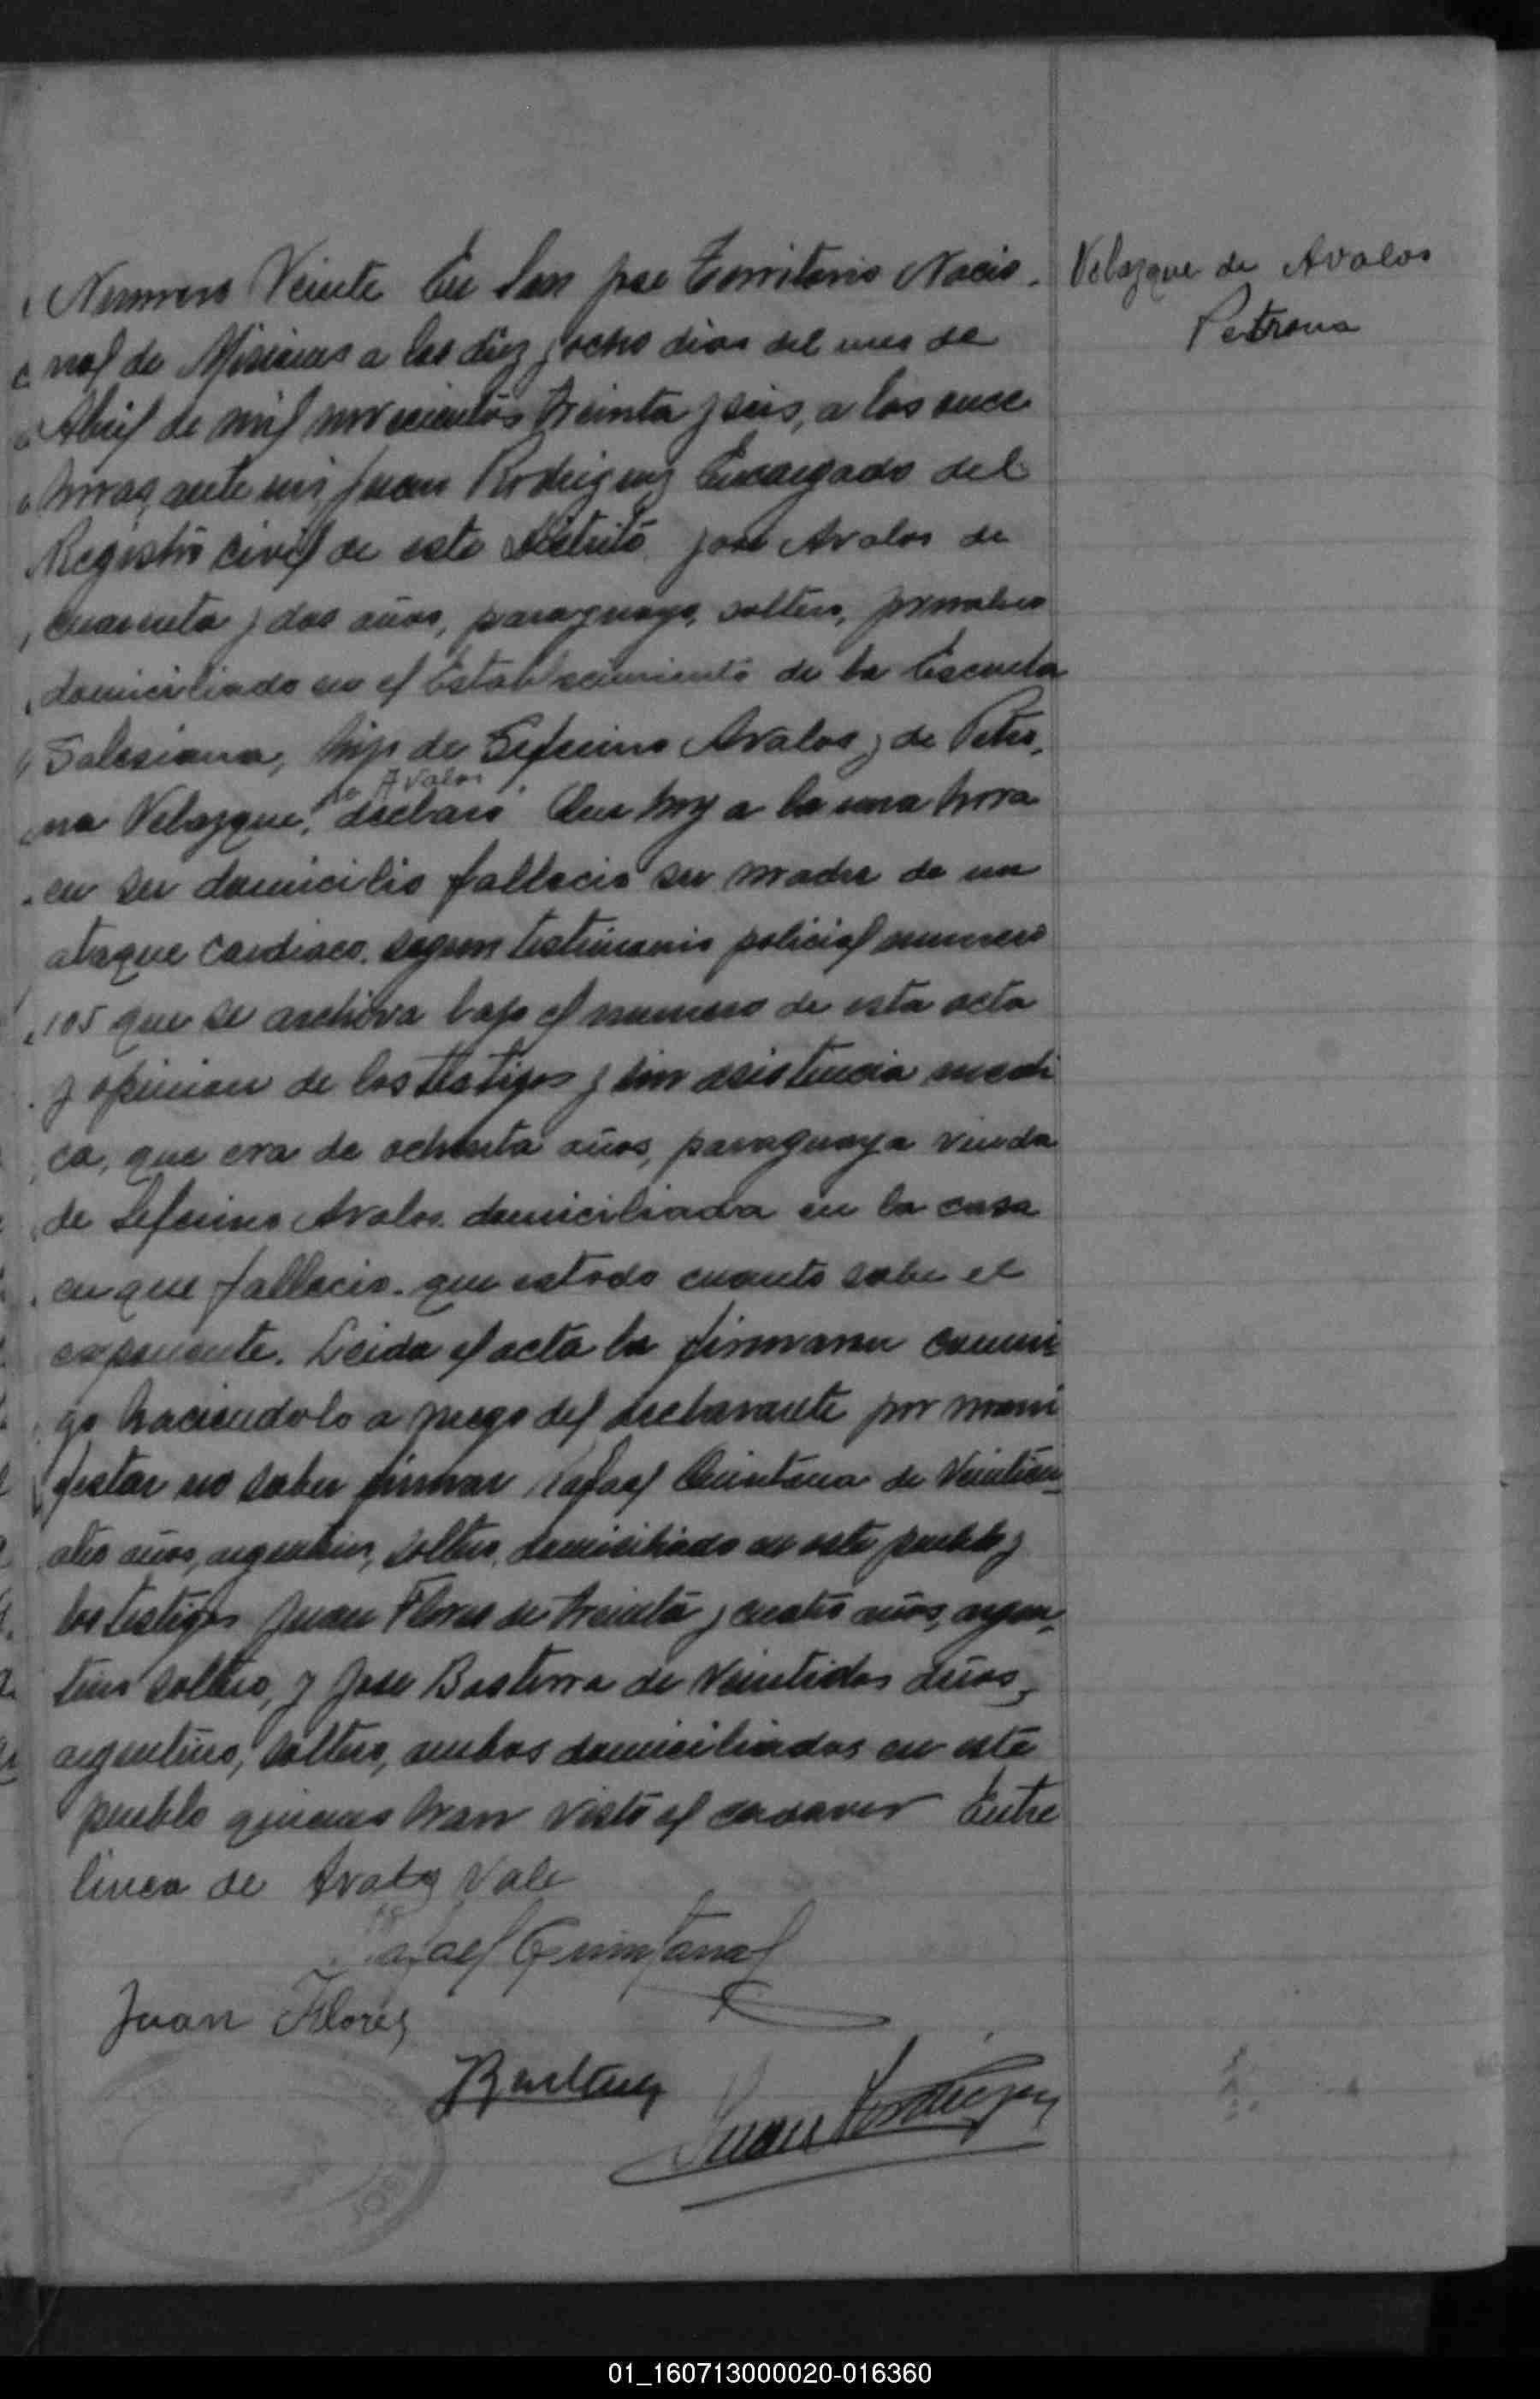 Velazque de Avalos
Petrona
Numero Veinte En San Jose Territorio Nacio-
nal de Misiones a los diez y ocho dias del mes de
Abril de mil novecientos treinta y seis, a las once
horas, ante mi, Juan Rodriguez Encargado del
Registro civil de este Distrito, José Avalos de
cuarenta y dos años, paraguayo, soltero, jornalero
domiciliado en el Establecimiento de la Escuela
Salesiana, hijo de Seferino Avalos y de Petro-
de Avalos
na Velazque, declaró: Que hoy a la una hora
en su domicilio fallecio su madre de un
ataque cardiaco, segun testimonio policial numero
105 que se archiva bajo el numero de esta acta
y opinion de los testigos y sin asistencia medi
ca, que era de ochenta años, paraguaya viuda
de Seferino Avalos domiciliada en la casa
en que fallecio. que es todo cuanto sabe el
exponente. Leida el acta la firmaron conmi-
go haciendolo a ruego del declarante por mani
festar no saber firmar Rafael Quintana de Veinticu-
atro años, argentino, soltero, domiciliado en este pueblo y
los testigos Juan Flores de treinta y cuatro años, argen-
tino soltero, y Jose Basterra de Veintidos años,
argentino, soltero, ambos domiciliados en este
pueblo quienes han visto el cadaver Entre
linea de Avalos Vale
Rafael Quintana
Juan Flores
Juan Rodriguez
01_160713000020-016360